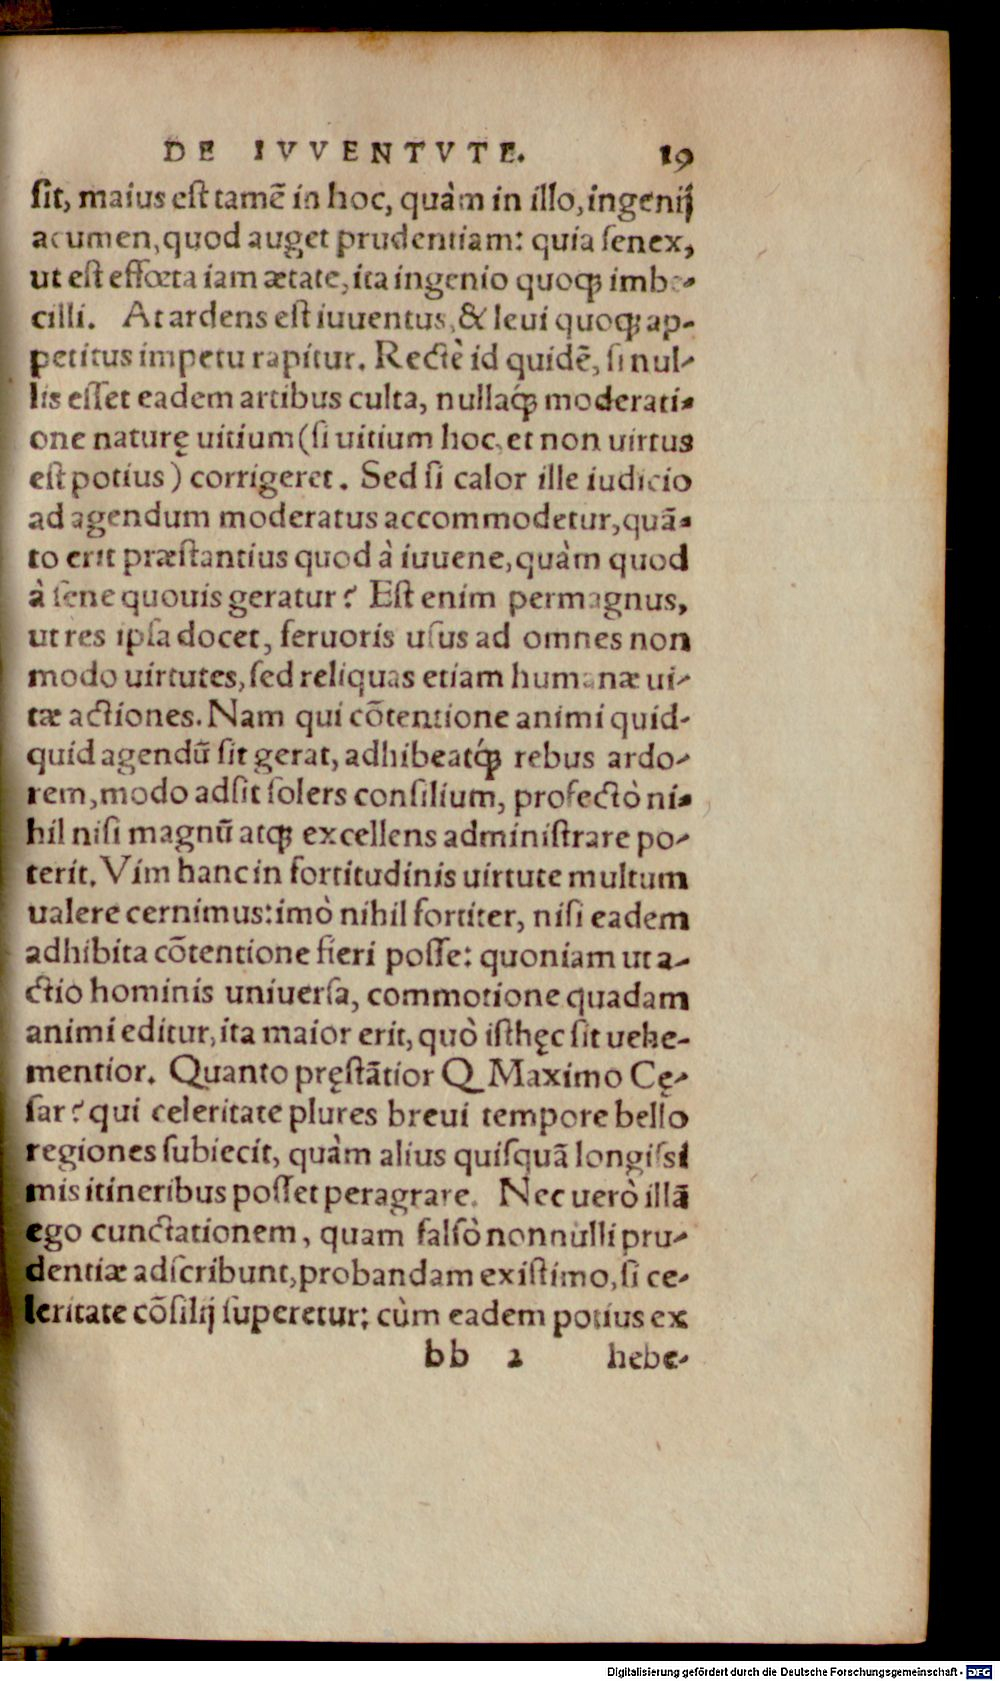 DE IVVENTVTE. 19
sit, maius est tamẽ in hoc, quàm in illo, ingenij
acumen, quod auget prudentiam: quia senex,
ut est effœta iam ætate, ita ingenio quoq; imbe-
cilli. At ardens est iuuentus, & leui quoq; ap-
petitus impetu rapitur. Rectè id quidẽ, si nul-
lis esset eadem artibus culta, nullaq́; moderati-
one naturę uitium (si uitium hoc, et non uirtus
est potius) corrigeret. Sed si calor ille iudicio
ad agendum moderatus accommodetur, quã-
to erit præstantius quod à iuuene, quàm quod
à sene quouis geratur? Est enim permagnus,
ut res ipsa docet, feruoris usus ad omnes non
modo uirtutes, sed reliquas etiam humanæ ui-
tæ actiones. Nam qui cõtentione animi quid-
quid agendũ sit gerat, adhibeatq́; rebus ardo-
rem, modo adsit solers consilium, profectò ni-
hil nisi magnũ atq; excellens administrare po-
terit. Vim hanc in fortitudinis uirtute multum
ualere cernimus: imò nihil fortiter, nisi eadem
adhibita cõtentione fieri posse: quoniam ut a-
ctio hominis uniuersa, commotione quadam
animi editur, ita maior erit, quò isthęc sit uehe-
mentior. Quanto pręstãtior Q. Maximo Cę-
sar? qui celeritate plures breui tempore bello
regiones subiecit, quàm alius quisquã longissi
mis itineribus posset peragrare. Nec uerò illã
ego cunctationem, quam falsò nonnulli pru-
dentiæ adscribunt, probandam existimo, si ce-
leritate cõsilij superetur: cùm eadem potius ex
bb 2 hebe-
Digitalisierung gefördert durch die Deutsche Forschungsgemeinschaft - DFG